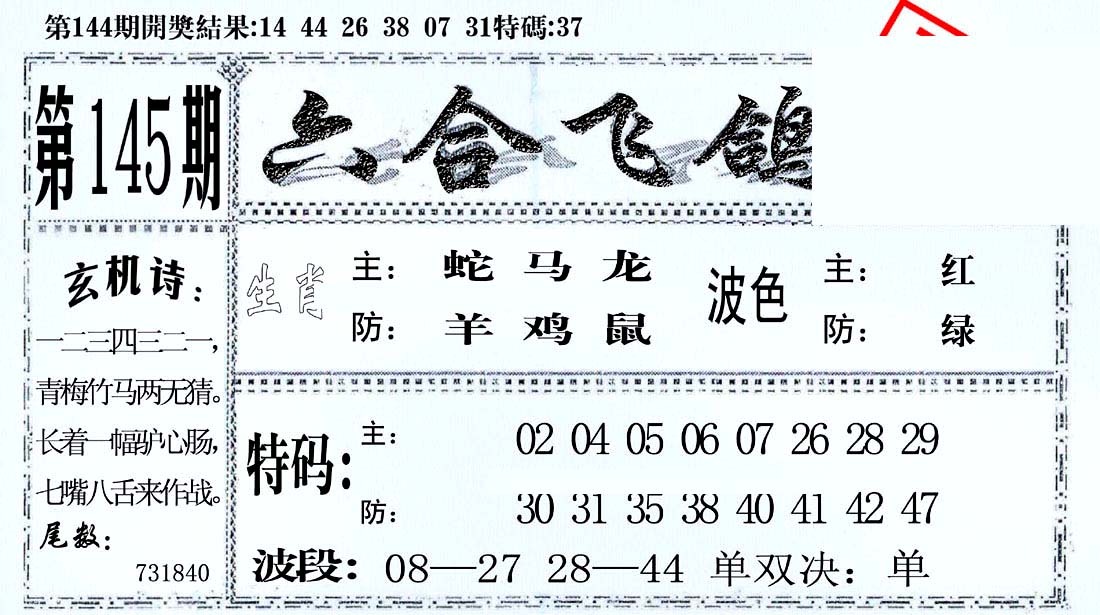 第144期開獎結果:14 44 26 38 07 31特碼:37
第145期
六合飞鸽
玄机诗:
一二三四三二一,
青梅竹马两无猜。
长着一幅驴心肠,
七嘴八舌来作战。
尾数:
731840
生肖
主: 蛇 马 龙
防: 羊 鸡 鼠
波色
主: 红
防: 绿
特码:
主: 02 04 05 06 07 26 28 29
防: 30 31 35 38 40 41 42 47
波段: 08—27 28—44 单双决: 单